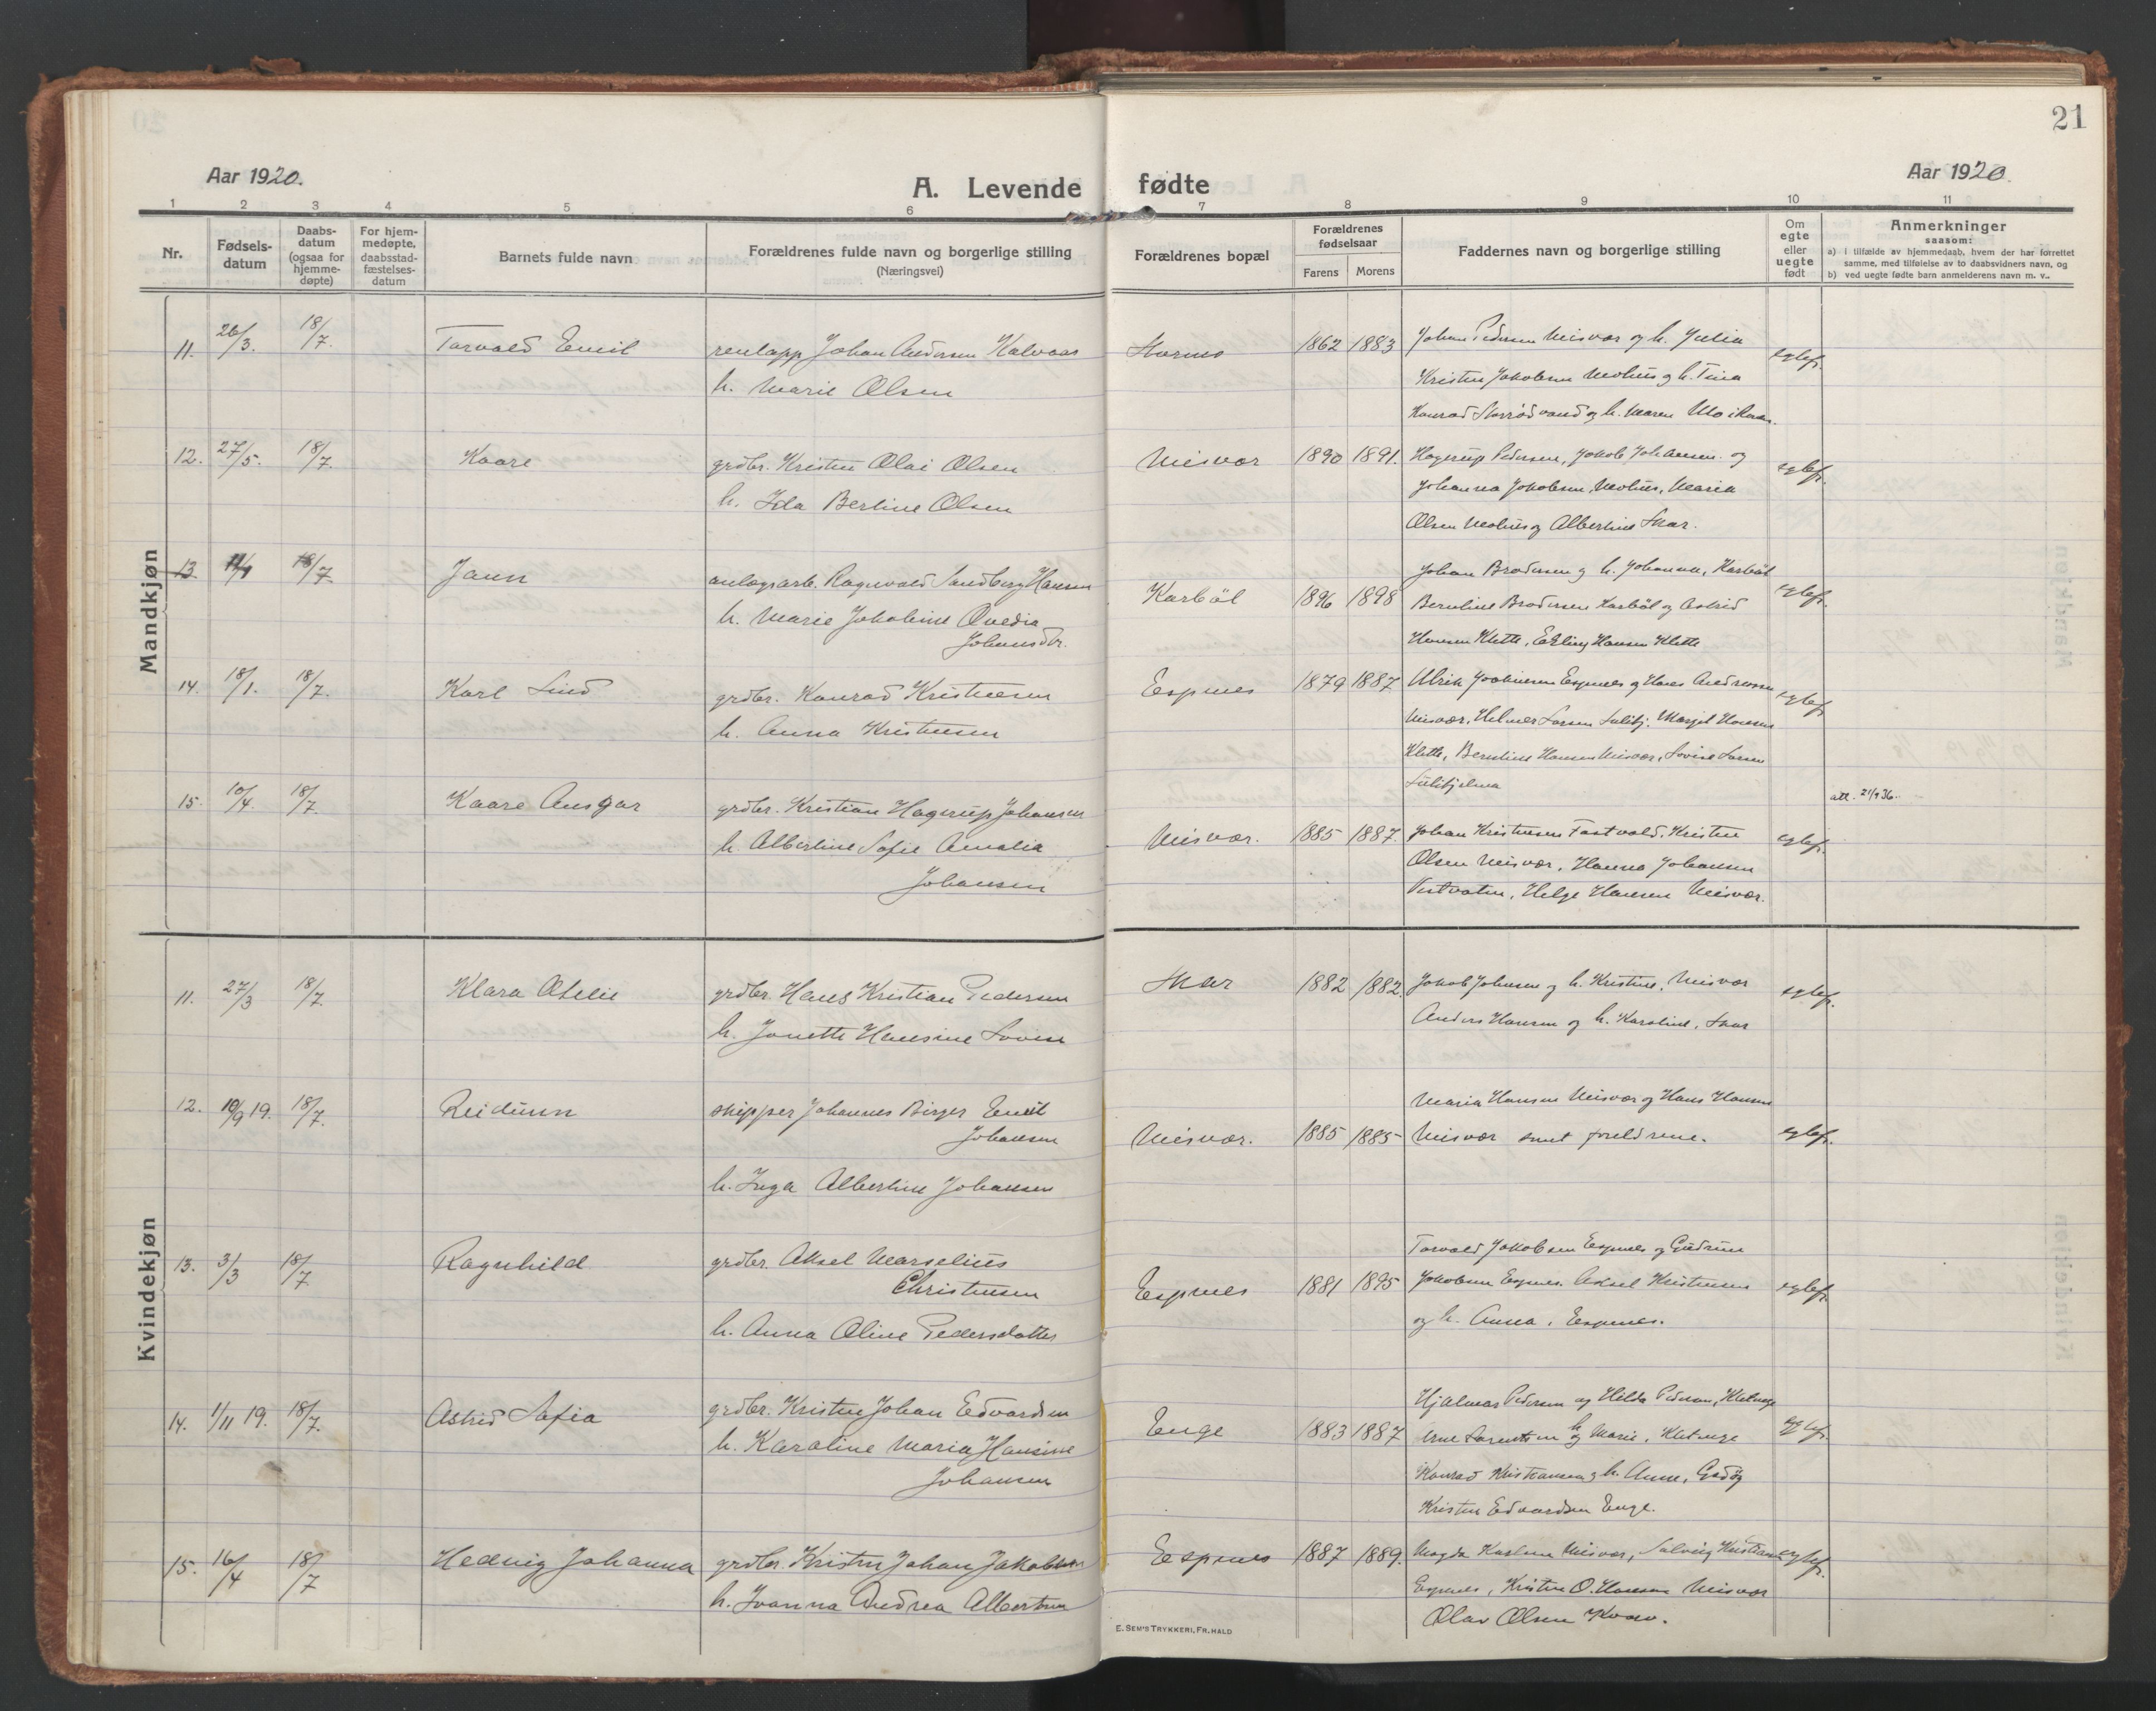 21
Aar 1920.
A. Levende fødte
Aar 1920.
1 2 3 4 5 6 7 8 9 10 11
Nr.
Fødsels-
datum
Daabs-
datum
(ogsaa for
hjemme-
døpte)
For hjem-
medøpte,
daabsstad-
fæstelses-
datum
Barnets fulde navn
Forældrenes fulde navn og borgerlige stilling
(Næringsvei)
Forældrenes bopæl
Forældrenes
fødselsaar
Farens
Morens
Faddernes navn og borgerlige stilling
Om
egte
eller
uegte
født
Anmerkninger
saasom:
a) i tilfælde av hjemmedaab, hvem der har forrettet
samme, med tilføielse av to daabsvidners navn, og
b) ved uegte fødte barn anmelderens navn m. v..
Mandkjøn
11. 26/3. 18/7. Torvald Emil
renlapp Johan Andersen Kalvaas
h. Marie Olsen
1862 1883
Johan Pedersen Misvær og h. Julia
Kristen Jakobsen og h. Tina
Konrad og h. Maren
egtef.
12. 27/5. 18/7. Kaare
grdbr. Kristen Olai Olsen
h. Ida Berline Olsen
Misvær 1890 1891.
Hagerup Pedersen, Jakob Johansen og
Johanna Jakobsen, Maria
Olsen og Albertine Skar.
egtef.
13 11/1 18/7 Jann
anlægsarb. Ragnvald Sandberg Hansen
h. Marie Jakobine Ovedia
Johansdtr.
Karbøl 1896 1898
Johan Brodersen og h. Johanna, Karbøl
Berntine Brodersen Karbøl og Astrid
Hansen Klette, Erling Hansen Klette
egtef.
14. 18/1. 18/7. Karl Lind
grdbr. Konrad Kristensen
h. Anna Kristensen
Espnes 1879 1887
Ulrik Joakimsen Espnes og Hans Andreassen
Misvær, Helmer Larsen Sulitj. Margit Hansen
Klette, Berntine Hansen Misvær, Lovise Larsen
Sulitjelma
egtef.
15. 10/4. 18/7. Kaare Ansgar
grdbr. Kristian Hagerup Johansen
h. Albertine Sofie Amalia
Johansen
Misvær. 1885 1887.
Johan Kristensen Tostvold, Kristen
Olsen Misvær, Hanna Johansen
Vestvatn, Helge Hansen Misvær.
egtef.
att. 21/9 36.
Kvindekjøn
11. 27/3 18/7. Klara Otelie
grdbr. Hans Kristian Pedersen
h. Jonette Hansine Lovise
Skar 1882 1882.
Jakob Johnsen og h. Kristine, Misvær
Anders Hansen og h. Karoline, Skar
egtef.
12. 10/9 19. 18/7. Reidunn
skipper Johannes Birger Emil
Johansen
h. Inga Albertine Johansen
Misvær. 1885 1885
Maria Hansen Misvær og Hans Hansen
Misvær samt foreldrene.
egtef.
13. 3/3 18/7 Ragnhild
grdbr. Aksel Marselius
Christensen
h. Anna Oline Pedersdatter
Espnes 1881 1895
Torvald Jakobsen Espnes og Gudrun
Jakobsen Espnes. Aksel Kristensen
og h. Anna, Espnes.
egtef.
14. 1/11 19. 18/7. Astrid Sofia
grdbr. Kristen Johan Edvardsen
h. Karoline Maria Hansine
Johansen
Enge 1883 1887
Hjalmar Pedersen og Hilda Pedersen,
Arne og h. Marie,
Konrad Kristiansen og h. Anne,
Kristen Edvardsen Enge.
egtef.
15. 16/4 18/7 Hedvig Johanna
grdbr. Kristen Johan Jakobsen
h. Ivanna Andrea Albertine
Espnes 1887 1889.
Magda Misvær, Solveig Kristiansen
Espnes, Kristen O. Hansen Misvær
Olav Olsen
egtef.
E. SEM'S TRYKKERI, FR.HALD